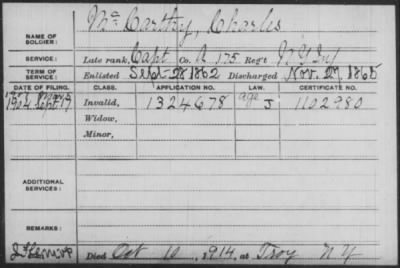 Mc Carthy, Charles
NAME OF SOLDIER:
SERVICE: Late rank, Capt Co. A 175 Reg't N Y Inf
TERM OF SERVICE: Enlisted Sept 1862 Discharged Nov. 27, 1865
DATE OF FILING. CLASS. APPLICATION NO. LAW. CERTIFICATE NO.
1904 Invalid, 1324678 age J 1102980
Widow,
Minor,
ADDITIONAL SERVICES:
REMARKS:
Died Oct 10, 1914, at Troy N Y